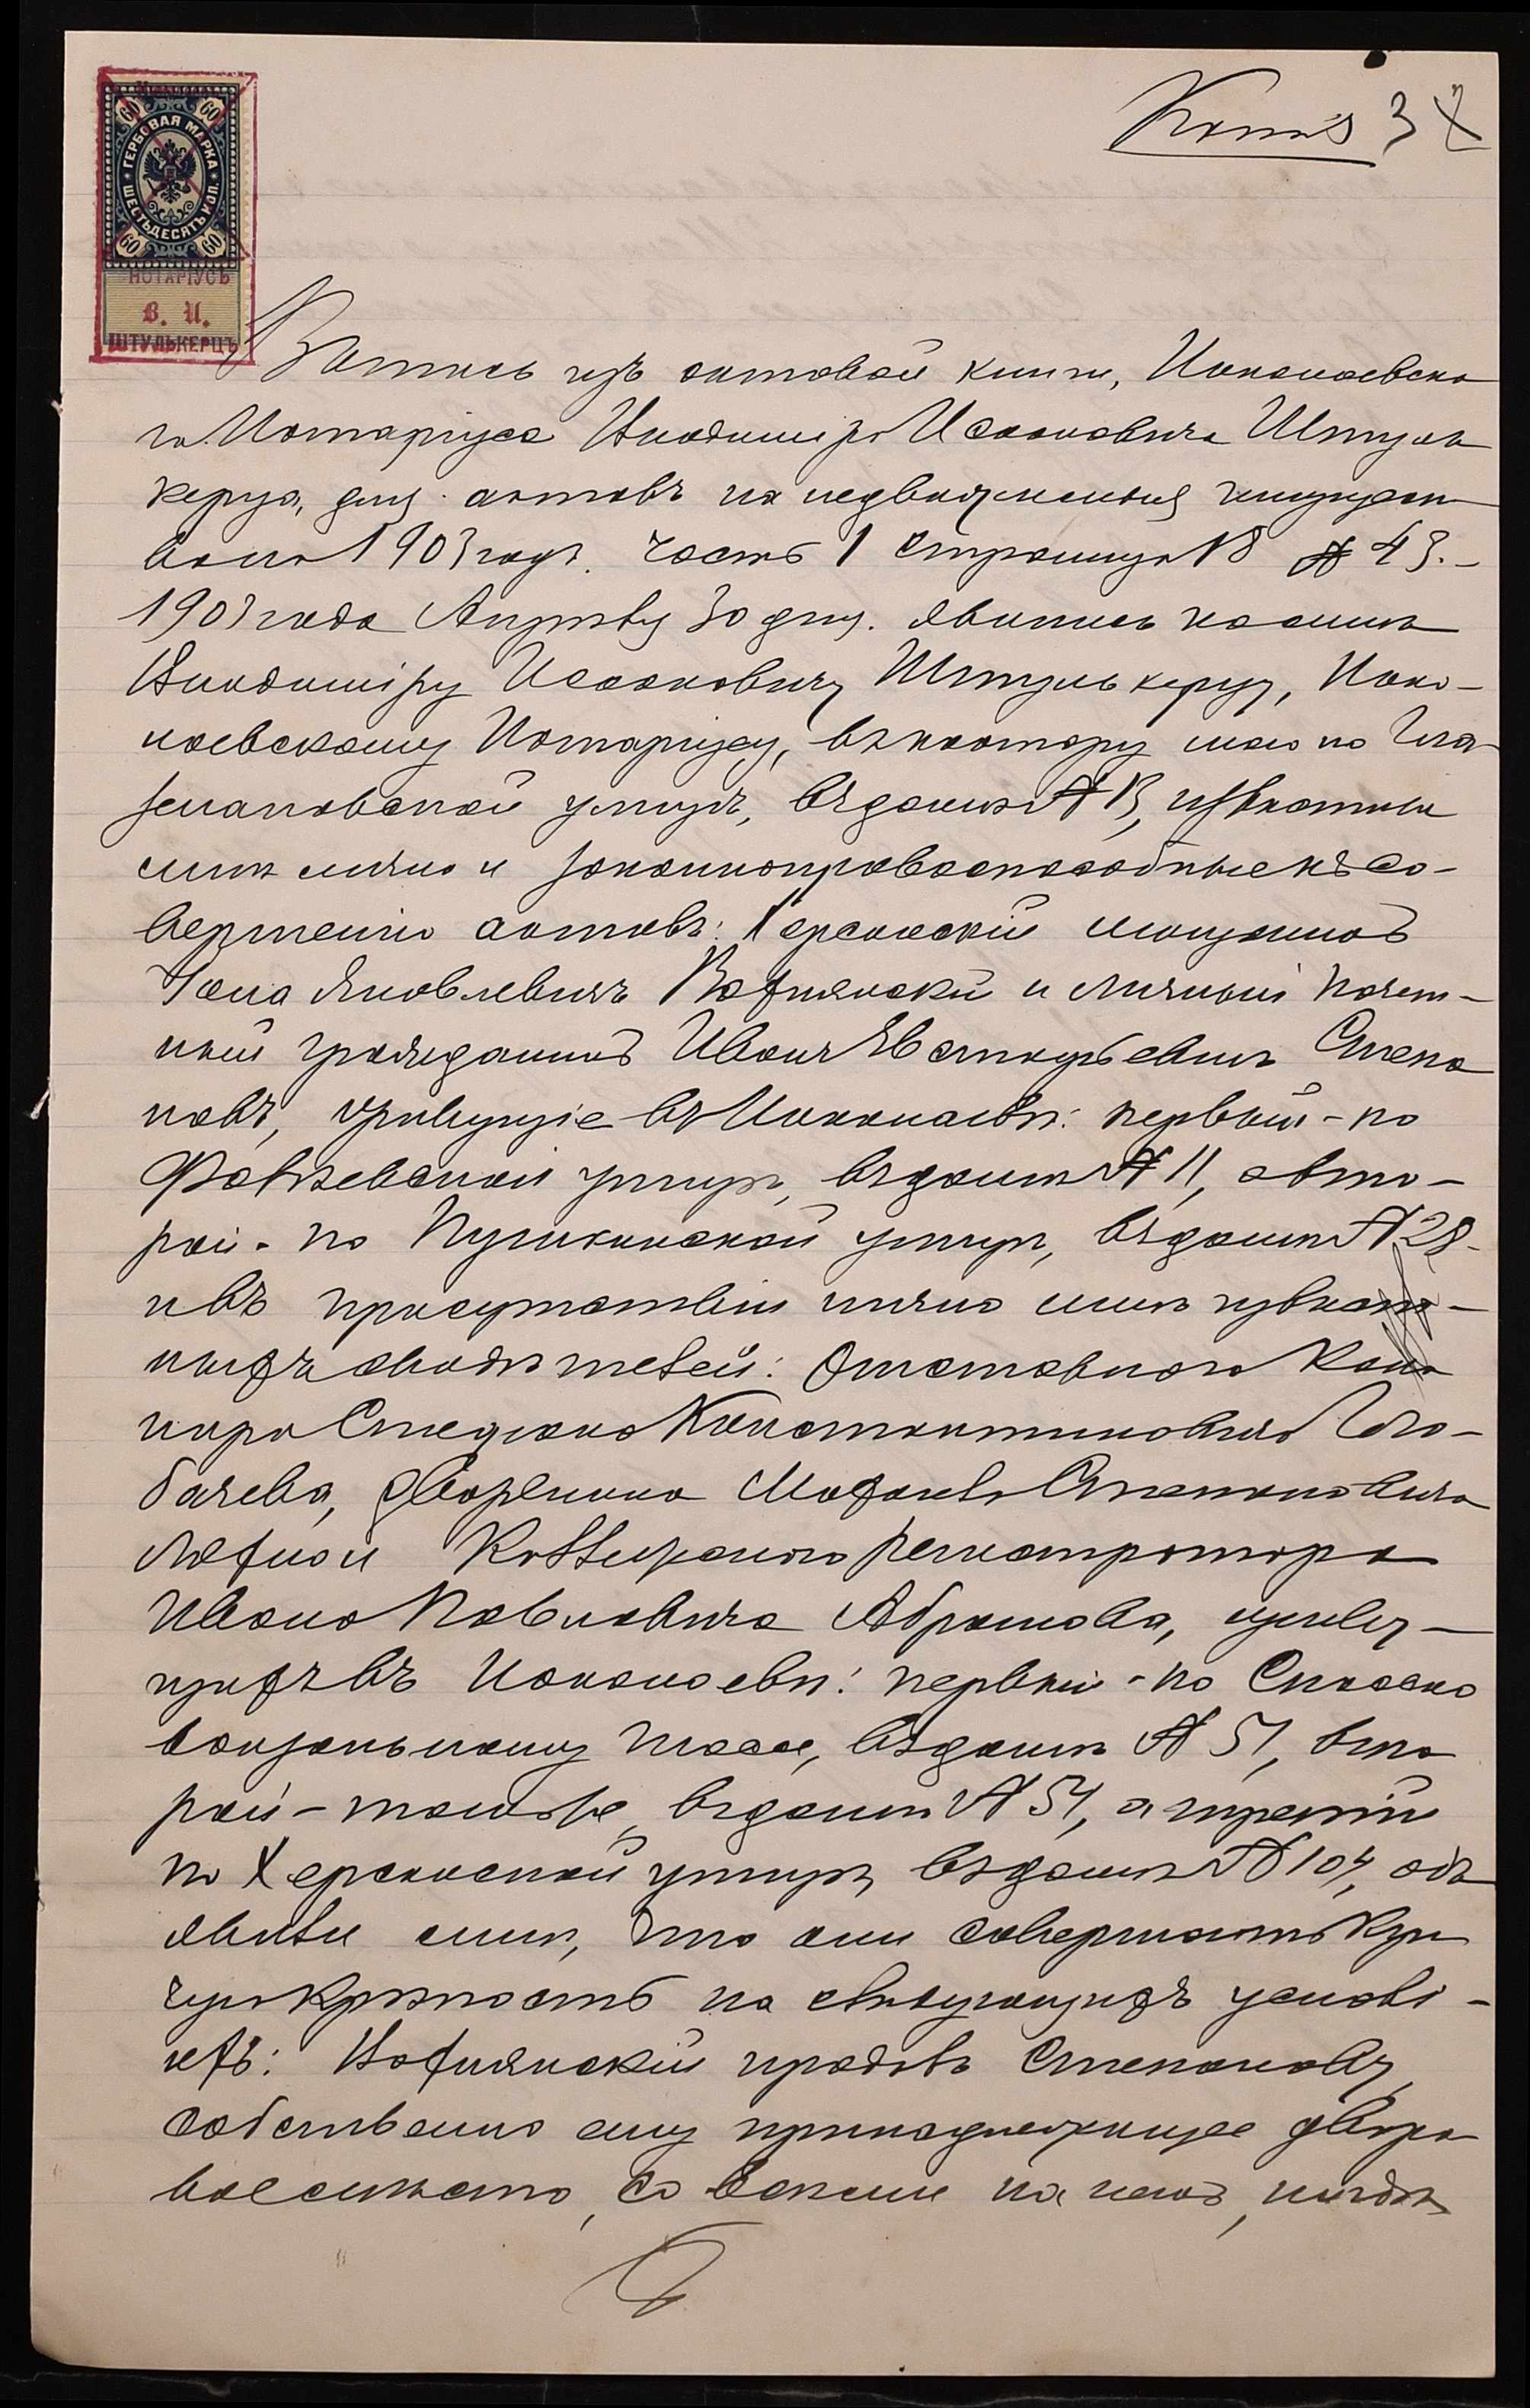 Копія 3
60 60
ГЕРБОВАЯ МАРКА
ШЕСТЬДЕСЯТЪ КОП.
60 60
НОТАРІУСЪ
В. И.
ШТУЛЬКЕРЦЪ
Выпись изъ актовой книги, Николаевска
го Нотаріуса Владиміра Исааковича Штуль
керца, для актовъ на недвижимыя имущест
ва на 1903 годъ. часть 1 страница 18 № 43.-
1903 года Августа 30 дня. явились ко мнѣ
Владиміру Исааковичу Штулькерцу, Нико-
лаевскому Нотаріусу, въ контору мою по Гла-
зенаповской улицѣ, въ домѣ № 13, извѣстные
мнѣ лично и законноправоспособные къ со-
вершенію актовъ: Херсонскій мѣщанинъ
Іона Яковлевичъ Вознянскій и личный почет-
ный гражданинъ Иванъ Евстафьевичъ Степа
новъ, живущіе въ Николаевѣ: первый - по
Фалѣевской улицѣ, въ домѣ № 11, а вто-
рой - по Пушкинской улицѣ, въ домѣ № 28-
и въ присутствіи лично мнѣ извѣст-
ныхъ свидѣтелей: Отставного Кано
нира Стефана Константиновича Гло-
бачева, дворянина Іосифа Степановича
и Коллежскаго регистратора
Ивана Павловича Абрамова, живу-
щихъ въ Николаевѣ: первый - по Спасско
вокзальному шоссе, въ домѣ № 51, вто
рой - тамъ же, въ домѣ № 51, а третій
по Херсонской улицѣ, въ домѣ № 104, объ
явили мнѣ, что они совершаютъ Куп
чую Крѣпость на слѣдующихъ услові-
яхъ: Вознянскій продалъ Степанову,
собственно ему принадлежащее дворо
вое мѣсто, со всѣми на немъ, нигдѣ